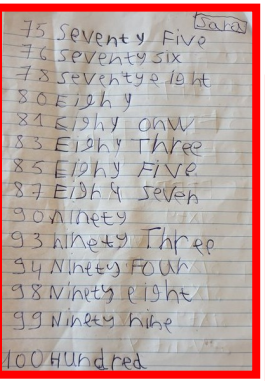 Sara
75 Seventy Five
76 Seventy six
78 seventy eight
80 Eighy
81 Eighy onw
83 Eighy Three
85 Eighy Five
87 Eighy seven
90 ninety
93 ninety Three
94 Ninety Four
98 Ninety eight
99 Ninety nine
100 Hundred